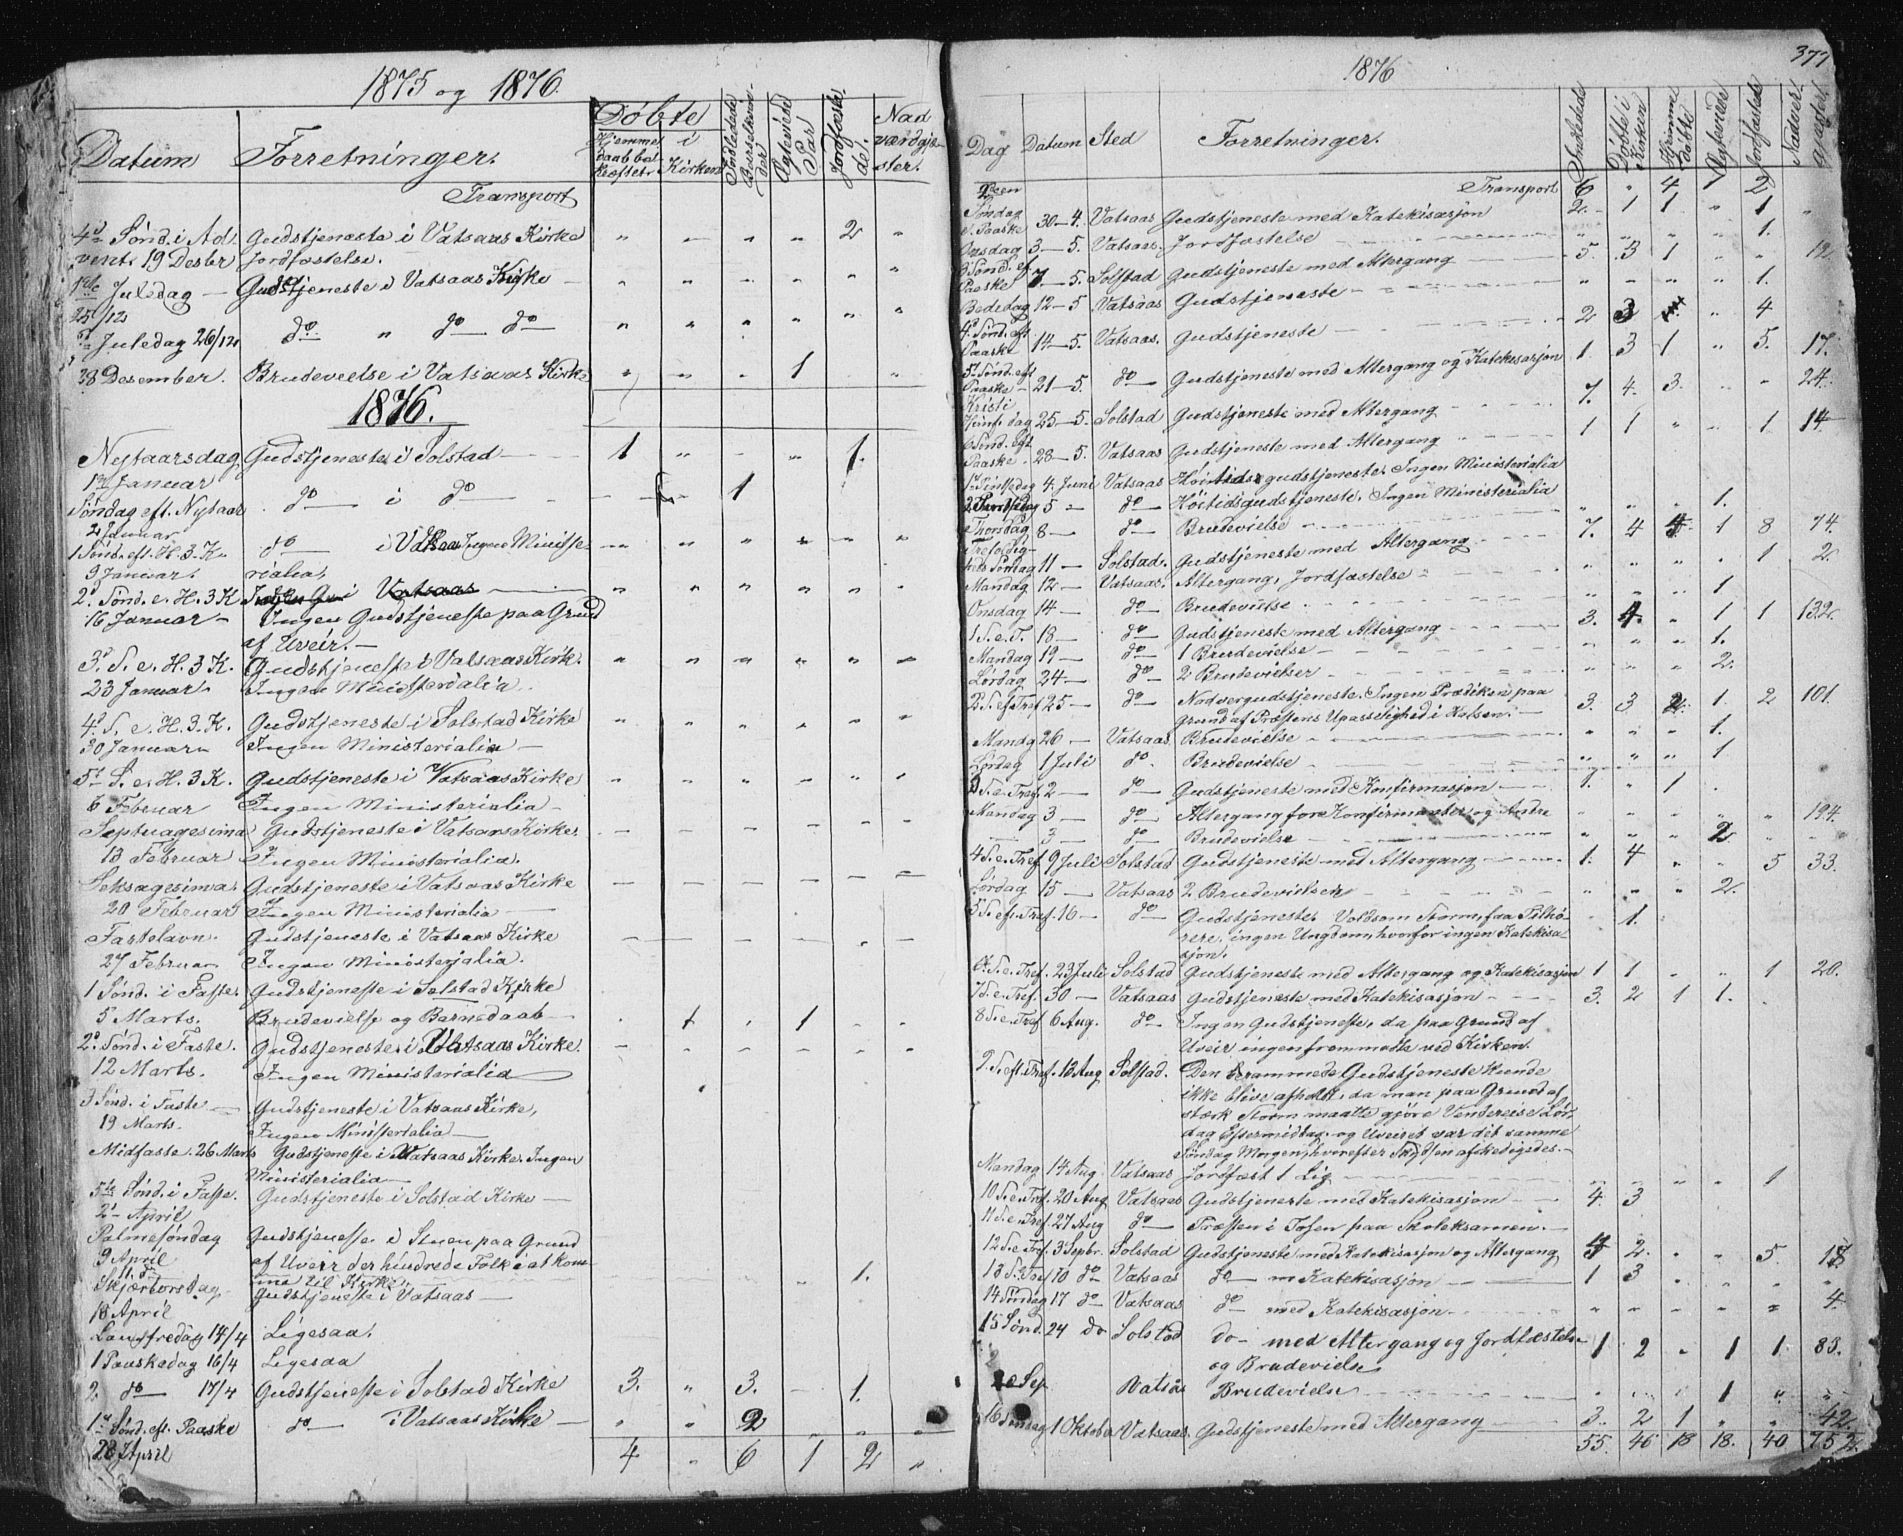 1875 og 1876.
Datum Forretninger.
Døbte
Hjemme
i Kirken
Nad
værdgjæ
ster.
Transport
4d Sønd. i Ad. Gudstjeneste i Vatsaas Kirke " — " " 2 "
vent. 19 Desbr Jordfæstelse.
1ste Juledag — Gudstjeneste i Vatsaas Kirke
25/12
Juledag 26/12 do " do do
28 Desember. Brudevielse i Vatsaas Kirke 1
1876.
Nytaarsdag Gudstjeneste i Solstad 1 " " 1.
1 Januar
Søndag eft. Nytaar do i do 1
2 Januar
1 Sønd. eft. H. 3 K. do i Vatsaas Ingen Ministe-
9 Januar. rialia,
2d Sønd. e. H. 3 K
16 Januar — Ingen Gudstjeneste paa Grund
af Uveir. —
3d S. e. H. 3 K. Gudstjeneste i Vatsaas Kirk.
23 Januar. Ingen Ministerialia.
4d S. e. H. 3. K. Gudstjeneste i Solstad Kirke
30 Januar. Ingen Ministerialia —
5t S. e. H. 3 K. Gudstjeneste i Vatsaas Kirke
6 Februar Ingen Ministerialia —
Septuagesima Gudstjeneste i Vatsaas Kirke.
13 Februar Ingen Ministerialia.
Seksagesima. Gudstjeneste i Vatsaas Kirke
20 Februar Ingen Ministerialia —
Fastelavn. Gudstjeneste i Vatsaas Kirke
27 Februar Ingen Ministerialia.
1 Sønd. i Faste. Gudstjeneste i Solstad Kirke
5 Marts. Brudevielse og Barnedaab 1 1
2d Sønd. i Faste. Gudstjeneste i Vatsaas Kirke.
12 Marts. Ingen Ministerialia
3 Sønd. i Faste — Gudstjeneste i Vatsaas Kirke,
19 Marts. Ingen Ministerialia —
Midfaste. 26 Marts Gudstjeneste i Vatsaas Kirke. Ingen
Ministerialia —
5te Sønd. i Faste. Gudstjeneste i Solstad Kirke —
2 April
Palmesøndag Gudstjeneste i Stuen paa Grund
9 April af Uveir der hindrede Folk i at kom
me til Kirke. 1.
Skjærtorsdag Gudstjeneste i Vatsaas —
13 April
Langfredag 14/4 Ligesaa.
1 Paaskedag 16/4 Ligesaa
2. do — 17/4 Gudstjeneste i Solstad Kirke 3. " 3. — 1.
1ste Sønd. eft. Paaske do — i Vatsaas Kirke — 2
23 April 4 " 6 1 2 "
1876
377
Dag Datum Sted Forretninger.
Døbte i
Kirken
Hjemme
døbte
Transport 6 " 4 1 2
Søndag
e. Paaske 30-4. Vatsaas Gudstjeneste med Katekisasjon 2. 1 1 " 1 "
Onsdag 3-5. Vatsaas. Jordfæstelse 1.
Paaske 7-5. Solstad Gudstjeneste med Altergang 5. 3 1 " " 12
Bededag 12-5 Vatsaas Gudstjeneste 1.
4d Sønd. eft
Paaske 14-5. Vatsaas. Gudstjeneste 2 3 4
5t Sønd. eft
Paaske 21-5. do Gudstjeneste med Altergang og Katekisasjon 1 3 1 " 5. 17.
Kristi
Himf. dag 25-5. Solstad Gudstjeneste med Altergang 7. 4. 3. " " 24.
6 Sønd. eft
Paaske. 28-5. Vatsaas Gudstjeneste med Altergang 1 1 " " 1 14
1 Pinsedag 4. Juni Vatsaas Høitidsgudstjeneste. Ingen Ministerialia
2 Pinsedag 5 — do Høitidsgudstjeneste. Ingen Ministerialia
Thorsdag 8 — do Brudevielse 1.
Trefoldig-
heds Søndag 11 — Solstad. Gudstjeneste med Altergang 7. 4 4 1 8 74.
Mandag 12 — Vatsaas. Altergang, Jordfæstelse 1 2.
Onsdag 14 do Brudevielse 1
1 S. e. T. 18 — do Gudstjeneste med Altergang 3. 4. 1 1 132.
Mandag 19 — do 1 Brudevielse 1.
Lørdag 24 — do 2 Brudevielser 2.
2 S. e. Tref 25 — do Nadvergudstjeneste. Ingen Prædiken paa
Grund af Præstens Upasselighed i Halsen. 3. 3 2. 1. 2 101.
Mandg 26 — Vatsaas Brudevielse 1.
Lørdag 1 Juli do. Brudevielse 1
S. e. Tref. 2 — do Gudstjeneste med Konfirmasjon 1. " 1
Mandag 3 — do Altergang for Konfirmanter og Andre 194.
— 3 do Brudevielse 2.
4 S. e. Tref 9 Juli Solstad Gudstjeneste med Altergang 1. 4 " " 5 33.
Lørdag 15 — Vatsaas 2 Brudevielser 2.
5 S. ef. Tref. 16 — do Gudstjeneste. Voldsom Storm, faa Tilhø-
rere, ingen Ungdom, hvorfor ingen Katekisa-
sjon. 1.
6. S. e. Tref. 23 Juli Solstad Gudstjeneste med Altergang og Katekisasjon 1 1 " " 1 20.
7 S. e. Tref. 30 — Vatsaas Gudstjeneste med Katekisasjon 3. 2 1 1.
8 S. e. Tref 6 Aug. do Ingen Gudstjeneste, da paa Grund af
Uveir ingen frammøtte ved Kirken.
9. S. eft. Tref. 13 Aug Solstad. Den berammede Gudstjeneste kunde
ikke blive afholdt, da man paa Grund af
stærk Storm maatte gjøre Vendereise Lør-
dag Eftermiddag, og Uveiret var det samme
Søndag Morgen, hvorefter Skydsen afskedigedes. —
Mandag 14 Aug. Vatsaas Jordfæst 1 Lig 1
10 S. e. Tref. 20 Aug Vatsaas Gudstjeneste med Katekisasjon 4. 3
11 S. e. Tref. 27 Aug do Præsten i Tosen paa Skoleksamen. —
12 S. e. Tref. 3 Sepbr. Solstad Gudstjeneste med Katekisasjon og Altergang 2. " " 5.
13 S. Tref 10 do Vatsaas do — m Katekisasjon 1 3
14 Søndag 17 do Vatsaas do med Katekisasjon. 4.
15 Sønd. 24 do Solstad do — med Altergang og Jordfæstelse
og Brudevielse 1 2 " 1 1. 83.
Sep. Vatsås Brudevielse 1
16 Søndag 1 Oktober Vatsaas. Gudstjeneste med Altergang 3. 2 1 " " 42.
55. 46 18 18. 40 752.